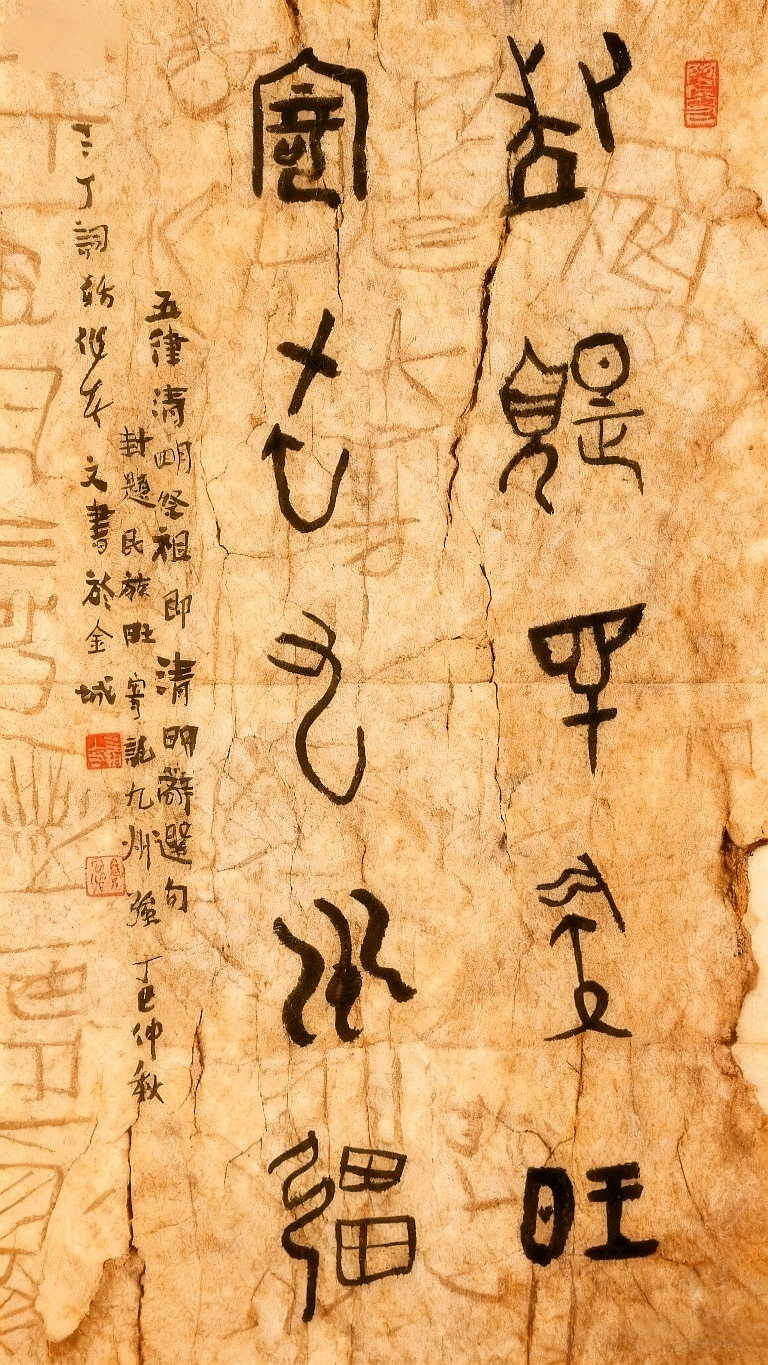 封題民族旺
九州彊
五律清明祭祖即清明辭選句
封題民族旺寧九州強丁巳仲秋
三丁詞作文書於金城